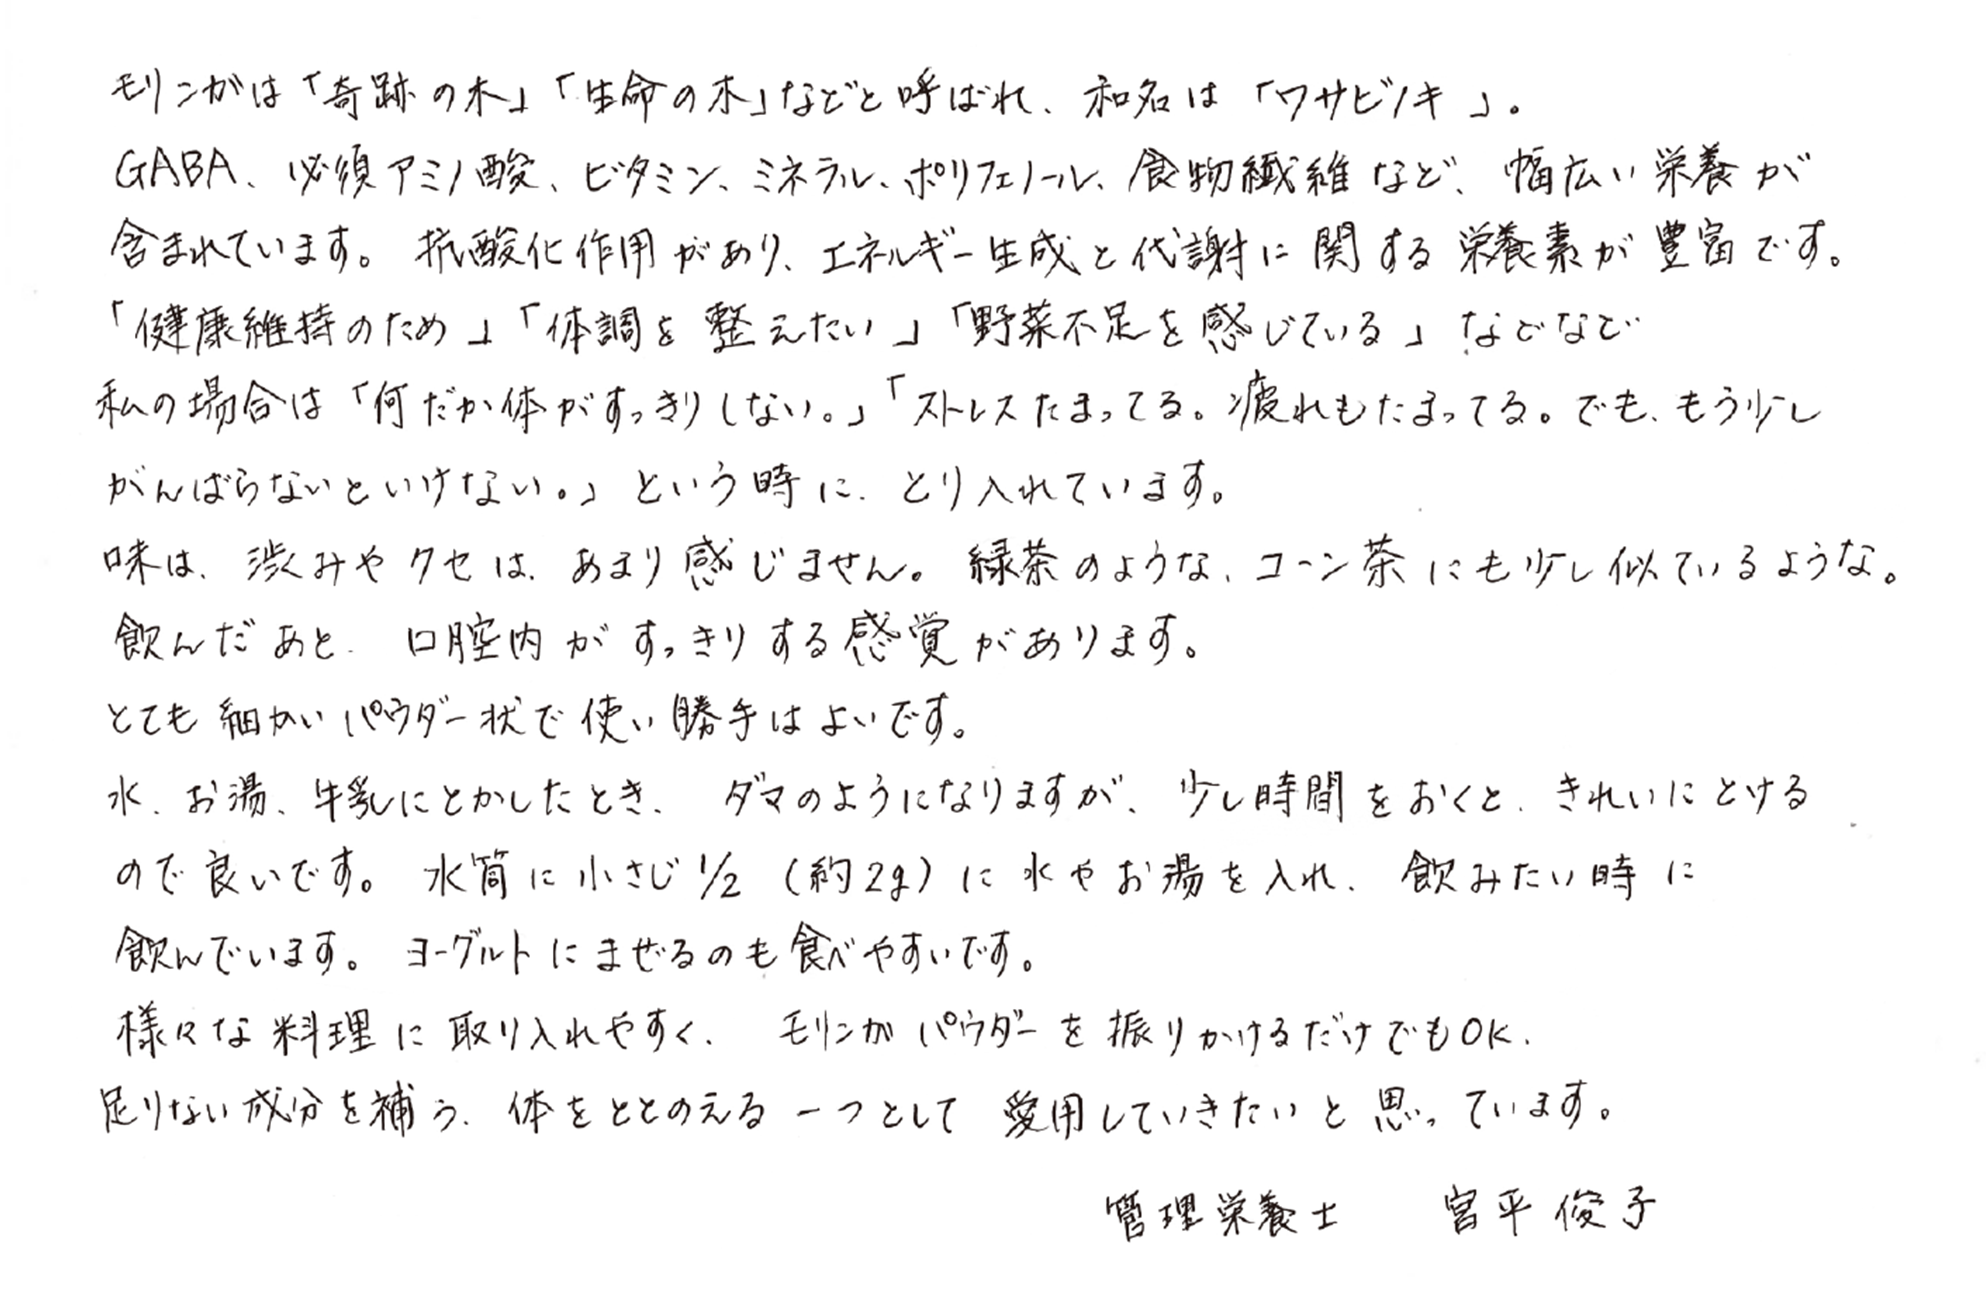 モリンガは「奇跡の木」「生命の木」などと呼ばれ、和名は「ワサビノキ」。
GABA、必須アミノ酸、ビタミン、ミネラル、ポリフェノール、食物繊維など、幅広い栄養が
含まれています。抗酸化作用があり、エネルギー生成と代謝に関する栄養素が豊富です。
「健康維持のため」「体調を整えたい」「野菜不足を感じている」などなど
私の場合は「何だか体がすっきりしない。」「ストレスたまってる。疲れもたまってる。でも、もう少し
がんばらないといけない。」という時に、とり入れています。
味は、渋みやクセは、あまり感じません。緑茶のような、コーン茶にも少し似ているような。
飲んだあと、口腔内がすっきりする感覚があります。
とても細かいパウダー状で使い勝手はよいです。
水、お湯、牛乳にとかしたとき、ダマのようになりますが、少し時間をおくと、きれいにとける
ので良いです。水筒に小さじ1/2（約2g）に水やお湯を入れ、飲みたい時に
飲んでいます。ヨーグルトにまぜるのも食べやすいです。
様々な料理に取り入れやすく、モリンガパウダーを振りかけるだけでもOK、
足りない成分を補う、体をととのえる一つとして愛用していきたいと思っています。
管理栄養士　宮平俊子